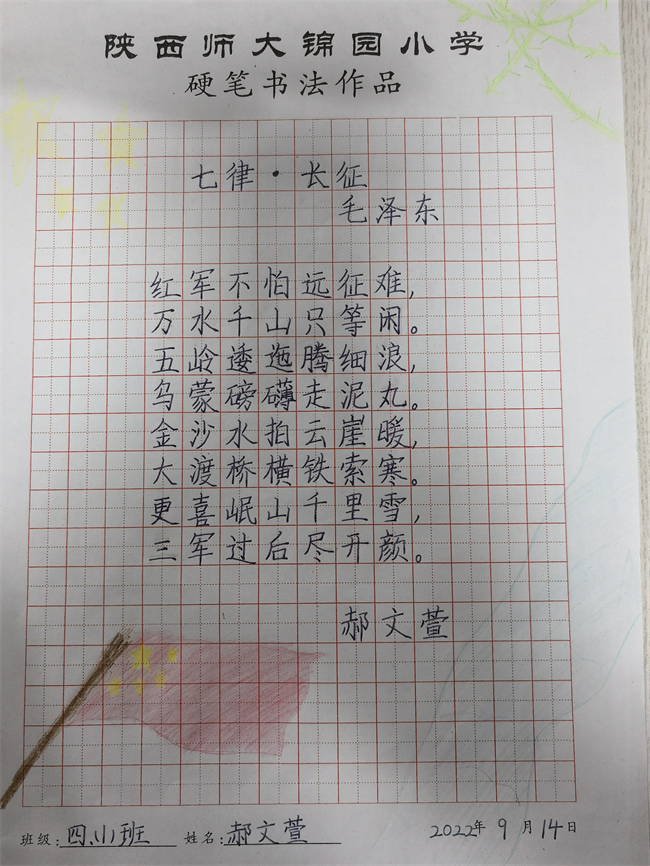 陕西师大锦园小学
硬笔书法作品
七律·长征
毛泽东
红军不怕远征难，
万水千山只等闲。
五岭逶迤腾细浪，
乌蒙磅礴走泥丸。
金沙水拍云崖暖，
大渡桥横铁索寒。
更喜岷山千里雪，
三军过后尽开颜。
郝文萱
班级：四.小班 姓名：郝文萱 2022年9月14日